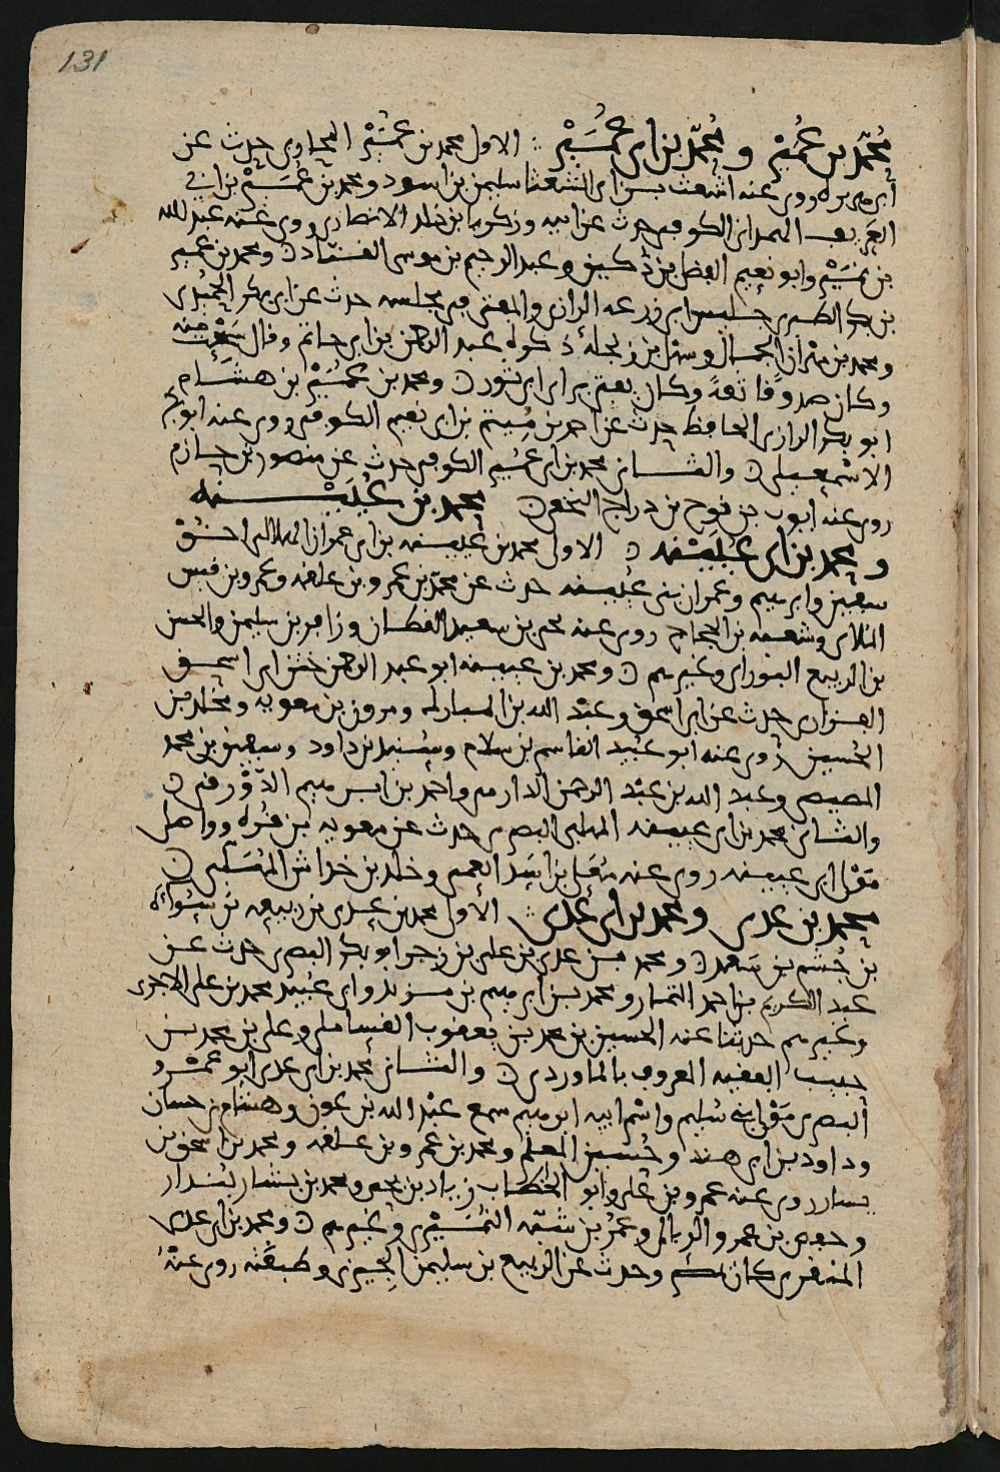 131
محمد بن عمير و محمد بن ابي عمير الاول محمد بن عمير المحاربي حدث عن
ابي هريره روى عنه اشعث بن ابي الشعثا سليمن بن اسود ومحمد بن عمير بن ابي
الغريف الهمداني الكوفي حدث عن ابيه وزكريا بن خلد الانصاري روى عنه عبد الله
بن نمير وابو نعيم الفضل بن دكين وعبد الرحيم بن موسى القتاد ومحمد بن عمير
بن بكر الطبري جليس ابي زرعه الرازي والمفتي في مجلسه حدث عن ابي بكر الحميدي
ومحمد بن مهران الجمال وسهل بن زنجله ذكره عبد الرحمن بن ابي حاتم وقال سمعت منه
وكان صدوقا ثقة وكان يفتي براي ابي ثور ومحمد بن عمير بن هشام
ابو بكر الرازي الحافظ حدث عن احمد بن ميتم بن ابي نعيم الكوفي روى عنه ابو بكر
الاسمعيلي والثاني محمد بن ابي عمير الكوفي حدث عن منصور بن حازم
روى عنه ايوب بن نوح بن دراج النخعي محمد بن عيينه
و محمد بن ابي عيينه الاول محمد بن عيينه بن ابي عمران الهلالي اخو
سفين وابرهيم وعمران بني عيينه حدث عن محمد بن عمرو بن علقمه وعمرو بن قيس
الملائي وشعبه بن الحجاج روى عنه يحيى بن سعيد القطان وزافر بن سليمن والحسن
بن الربيع البوراني وغيرهم ومحمد بن عيينه ابو عبد الرحمن ختن ابي اسحق
الفزاري حدث عن ابي اسحق وعبد الله بن المبارك ومرون بن معويه ومخلد بن
الحسين روى عنه ابو عبيد القاسم بن سلام وسنيد بن داود وسفين بن محمد
المصيصي وعبد الله بن عبد الرحمن الدارمي واحمد بن ابرهيم الدورقي
والثاني محمد بن ابي عيينه المهلبي البصري حدث عن معويه بن قره وواصل
مولى ابي عيينه روى عنه معلى بن اسد العمي وخلد بن خداش المهلبي
محمد بن عدي ومحمد بن ابي عدي الاول محمد بن عدي بن ربيعه بن سواءة
بن جشم بن سعد ومحمد بن عدي بن علي بن زحر ابو بكر البصري حدث عن
عبد الكريم بن احمد التمار ومحمد بن ابرهيم بن وابي عبيد محمد بن علي الاجري
وغيرهم حدثنا عنه الحسين بن محمد بن يعقوب الفسامي وعلي بن محمد بن
حبيب الفقيه المعروف بالماوردي والثاني محمد بن ابي عدي ابو عمرو
البصري مولى بني سليم واسم ابيه ابرهيم سمع عبد الله بن عون وهشام بن حسان
وداود بن ابي هند وحسين المعلم ومحمد بن عمرو بن علقمه ومحمد بن اسحق بن
يسار روى عنه عمرو بن علي وابو الخطاب زياد بن يحيى ومحمد بن بشار بندار
وحفص بن عمرو الربالي وعمر بن شبه النميري وغيرهم ومحمد بن ابي عدي
المنقري كان بمصر وحدث عن الربيع بن سليمن الجيزي وطبقته روى عنه